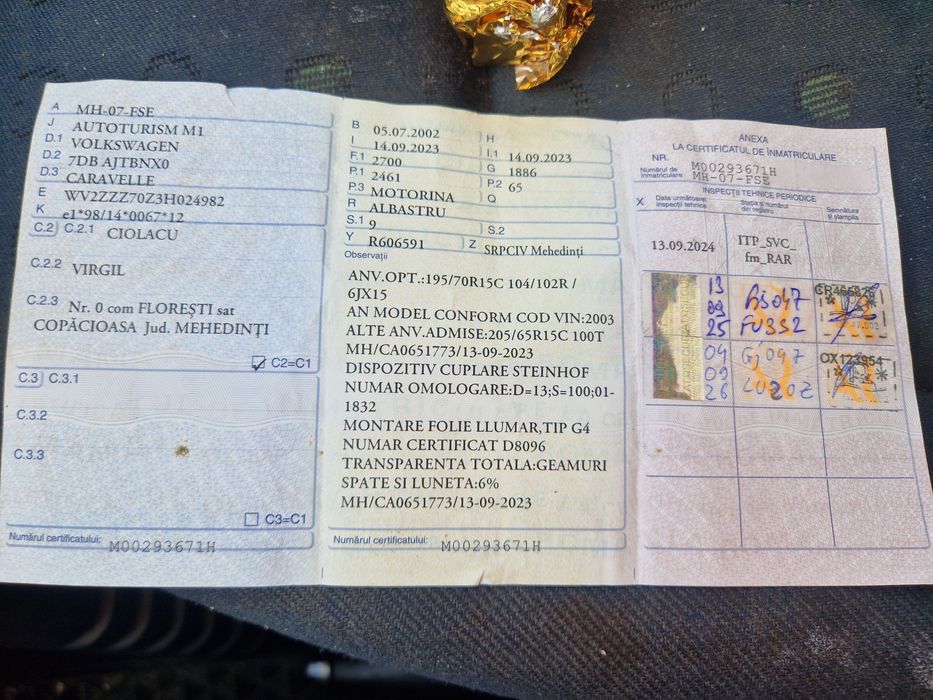 A MH-07-FSE
J AUTOTURISM M1
D.1 VOLKSWAGEN
D.2 7DB AJTBNX0
D.3 CARAVELLE
E WV2ZZZ70Z3H024982
K e1*98/14*0067*12
C.2 C.2.1 CIOLACU
C.2.2 VIRGIL
C.2.3 Nr. 0 com FLOREȘTI sat
COPĂCIOASA Jud. MEHEDINȚI
C2=C1
C.3 C.3.1
C.3.2
C.3.3
C3=C1
Numărul certificatului: M00293671H
B 05.07.2002 H
I 14.09.2023 I.1 14.09.2023
F.1 2700 G 1886
P.1 2461 P.2 65
P.3 MOTORINA Q
R ALBASTRU
S.1 9 S.2
Y R606591 Z SRPCIV Mehedinți
Observații
ANV.OPT.:195/70R15C 104/102R /
6JX15
AN MODEL CONFORM COD VIN:2003
ALTE ANV.ADMISE:205/65R15C 100T
MH/CA0651773/13-09-2023
DISPOZITIV CUPLARE STEINHOF
NUMAR OMOLOGARE:D=13;S=100;01-
1832
MONTARE FOLIE LLUMAR,TIP G4
NUMAR CERTIFICAT D8096
TRANSPARENTA TOTALA:GEAMURI
SPATE SI LUNETA:6%
MH/CA0651773/13-09-2023
Numărul certificatului: M00293671H
ANEXA
LA CERTIFICATUL DE ÎNMATRICULARE
NR. M00293671H
Numărul de înmatriculare MH-07-FSE
INSPECȚII TEHNICE PERIODICE
X Data următoarei inspecții tehnice
Stația și numărul din registru
Semnătura și ștampila
13.09.2024 ITP_SVC_
fm_RAR
13
09
25
04
09
26